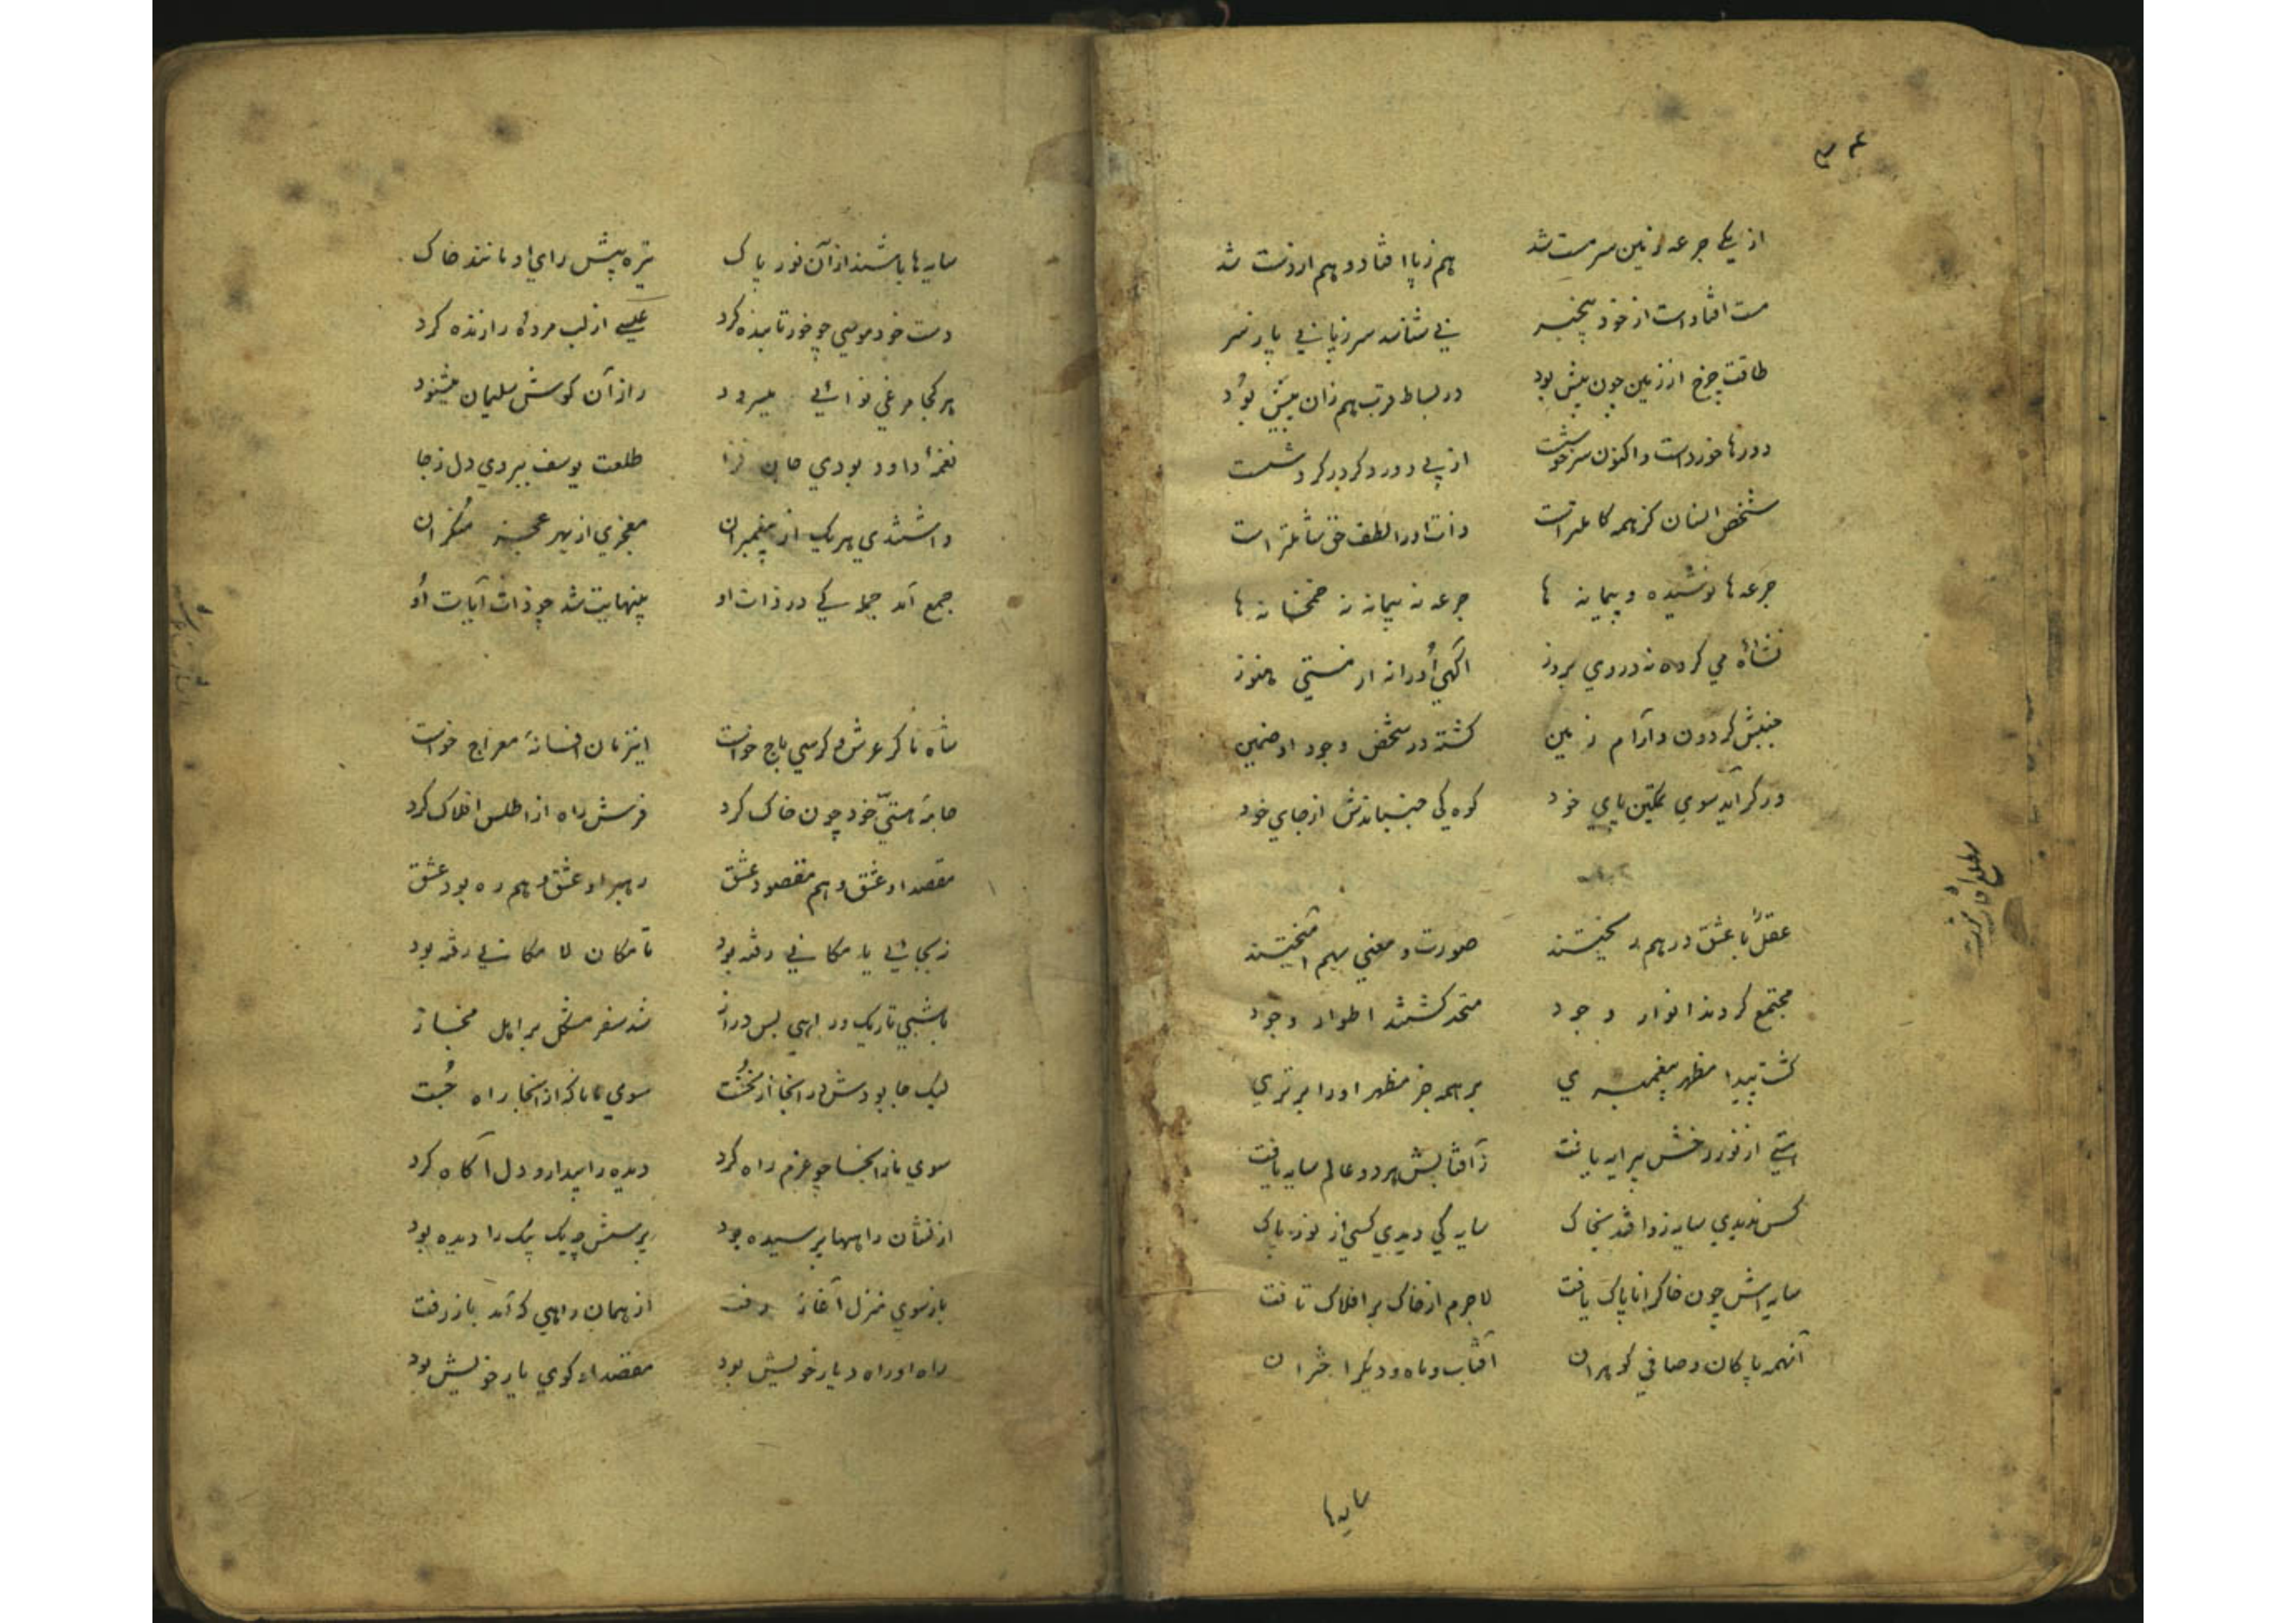 از یکی جرعه زمین سرمست شد هم ز پا افتاد و هم از دست شد
مست افتاد است از خود بیخبر نی شناسد سر ز پا نی پا ز سر
طاقت چرخ از زمین چون بیش بود در بساط قرب هم زان بیش بود
دورها خورد است و اکنون سرخوشست از پی دور دکر در کردشست
شخص انسان کز همه کاملتر است ذات او را لطف حق شاملتر است
جرعه ها نوشیده و پیمانه ها جرعه نه پیمانه نه خمخانه ها
نشاٴه می کرده نه در وی بروز آکهی او را نه از مستی هنوز
جنبش کردون و آرام زمین کشته در شخص وجود او ضمین
ور کر آید سوی تمکین پای خود کوه کی جنباندش از جای خود
عقل با عشق در هم ریختند صورت و معنی بهم آمیختند
مجتمع کردند انوار وجود متحد کشتند اطوار وجود
کشت پیدا مظهر پیغمبری بر همه جز مظهر او را برتری
هستی از نور رخش پیرایه یافت ز آفتابش هر دو عالم سایه یافت
کس ندیدی سایه زو افتد بخاک سایه کی دیدی کسی از نور پاک
سایه اش چون خاک را ناپاک یافت لاجرم از خاک بر افلاک تافت
آنهمه پاکان و صافی کوهران آفتاب و ماه و دیکر اختران
سایه ها
سایه ها باشند از آن نور پاک تیره پیش رای او مانند خاک
دست خود موسی چو خور تابنده کرد عیسی از لب مرده را زنده کرد
هر کجا مرغی نوائی میسرود راز آن کوش سلیمان میشنود
نغمهٔ داود بودی جان فزا طلعت یوسف ببردی دل ز جا
داشتندی هر یک از پیغمبران معجزی از بهر عجز منکران
جمع آمد جمله کی در ذات او بینهایت شد چو ذات آیات او
شاه ما کز عرش و کرسی باج خواست اینزمان افسانهٔ معراج خواست
جامهٔ هستی خود چون خاک کرد فرش راه از اطلس افلاک کرد
مقصد او عشق و هم مقصود عشق رهبر او عشق و هم ره بود عشق
ز بیجائی یا مکانی رفته بود تا مکان لا مکانی رفته بود
با شبی تاریک و راهی بس دراز شد سفر مشکل بر اهل مجاز
لیک جا بودش در آنجا از نخست سوی ما ناکه از آنجا راه جست
سوی ما زانجا چو عزم راه کرد دیده را بیدار و دل آکاه کرد
از نشان راهها پرسیده بود پرسش چه یک بیک را دیده بود
باز سوی منزل آغاز رفت از همان راهی که آمد باز رفت
راه او راه دیار خویش بود مقصد او کوی یار خویش بود